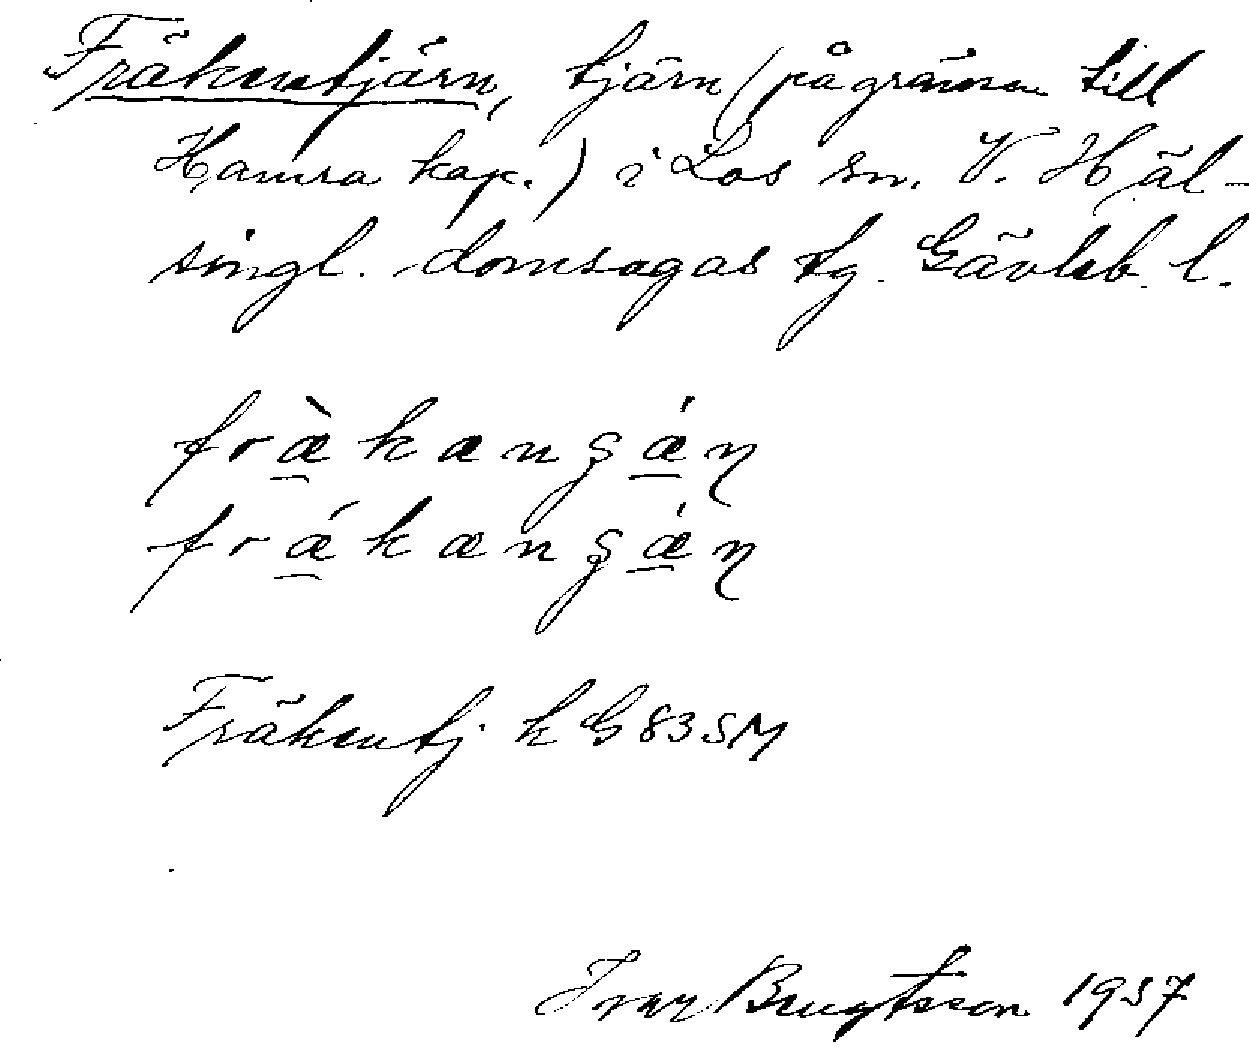 Fräkentjärn, tjärn (på gränsen till
Hamra kap.) i Los sn. V. Häl-
singl. domsagas tg. Gävleb. l.
fræ̀kængǽn
frǽkængǽn
Fräkentj k G 83 SM
Ivar Bengtsson 1937